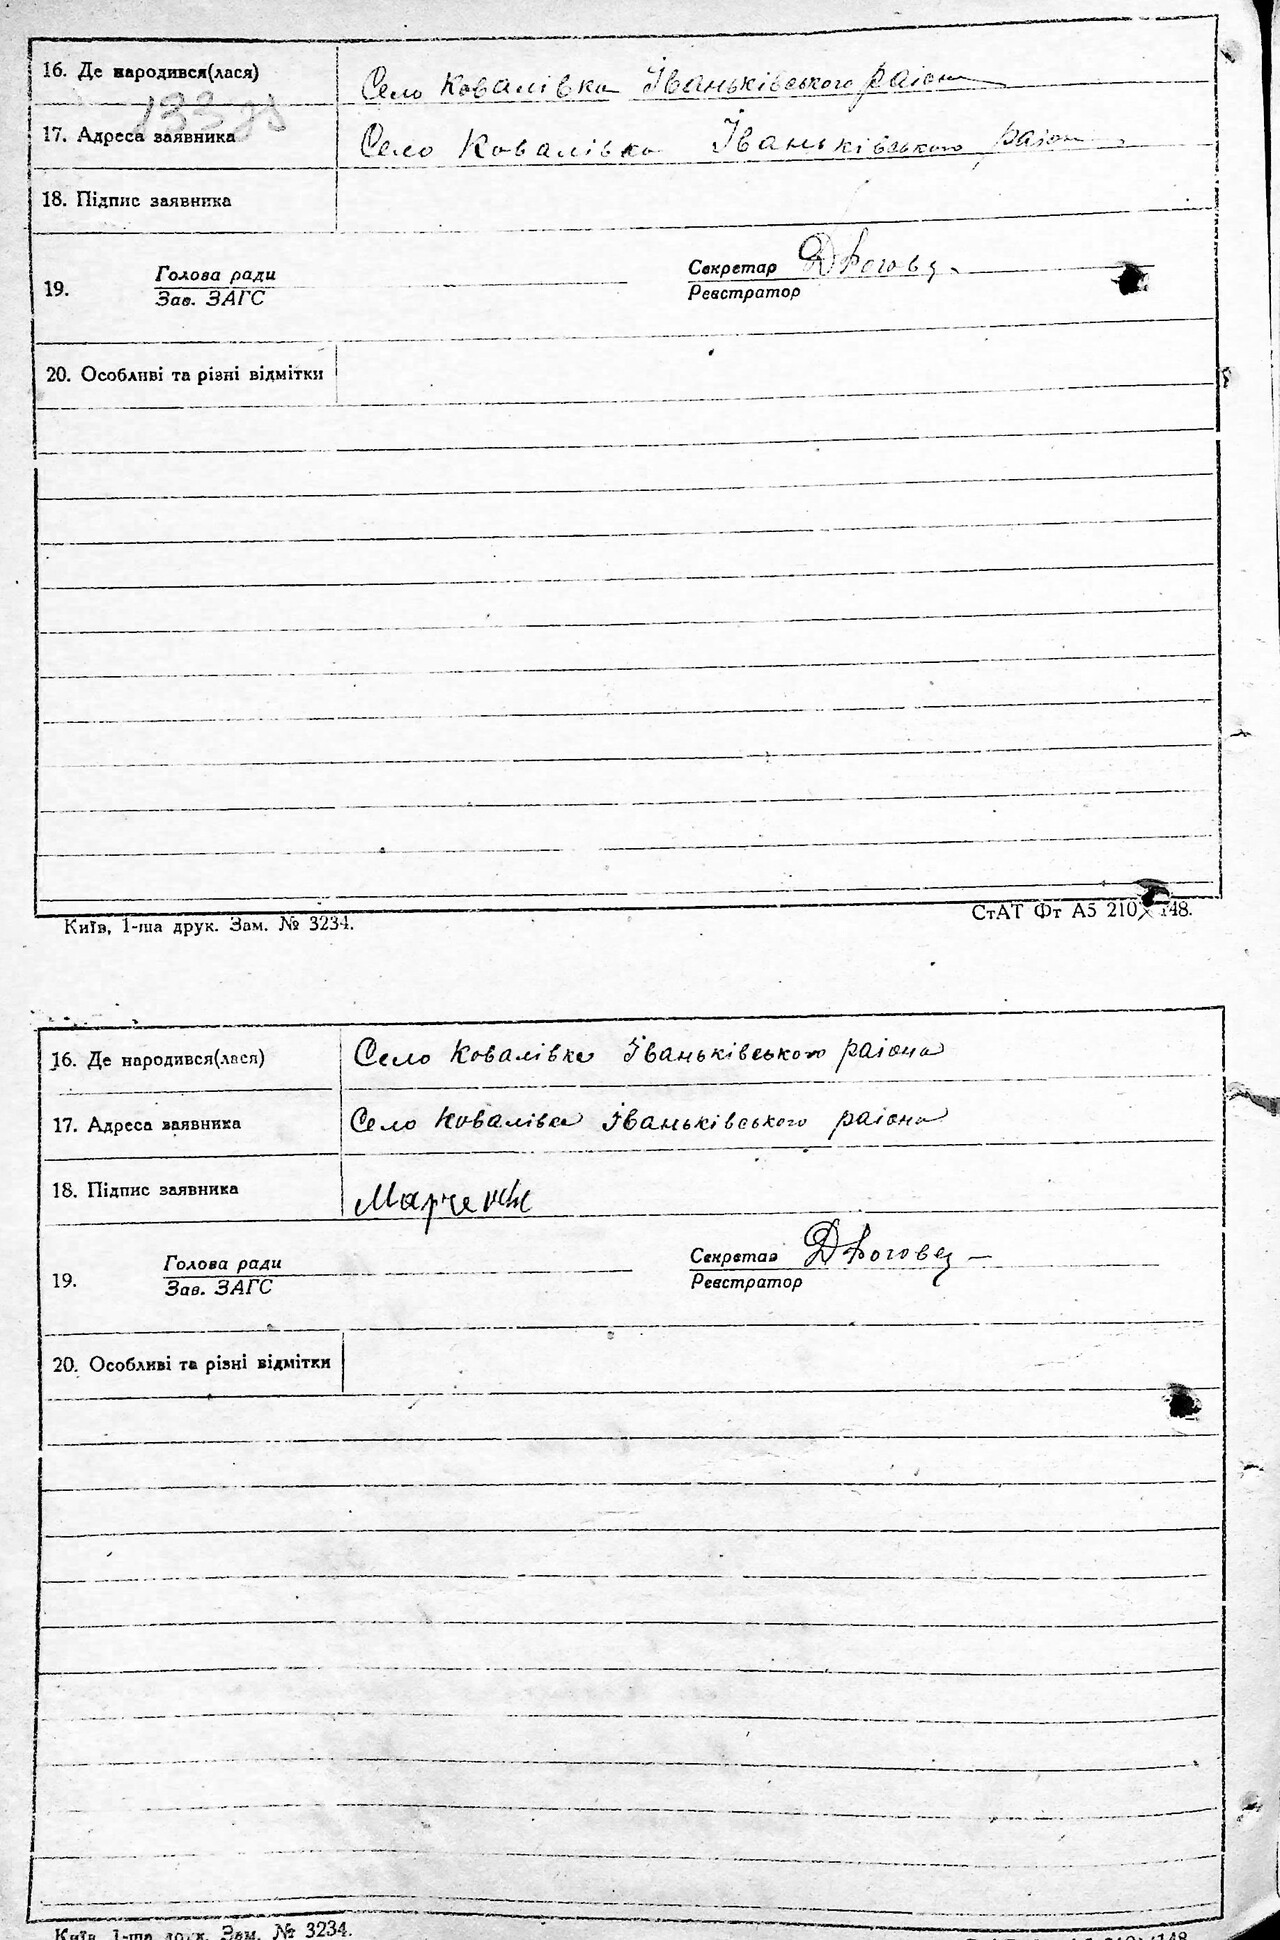 16. Де народився(лася) Село Ковалівка Іваньківського раіона
17. Адреса заявника Село Ковалівка Іваньківського раіона
18. Підпис заявника
Голова ради Секретар
19.
Зав. ЗАГС Реєстратор
20. Особливі та різні відмітки
Київ, 1-ша друк. Зам. № 3234. СтАТ Фт А5 210×148.
16. Де народився(лася) Село Ковалівка Іваньківського раіона
17. Адреса заявника Село Ковалівка Іваньківського раіона
18. Підпис заявника Марченко
Голова ради Секретар
19.
Зав. ЗАГС Реєстратор
20. Особливі та різні відмітки
Київ, 1-ша друк. Зам. № 3234.